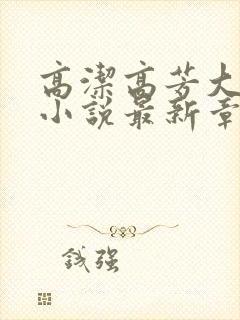 高潔高芳大
小說最新章
錢強